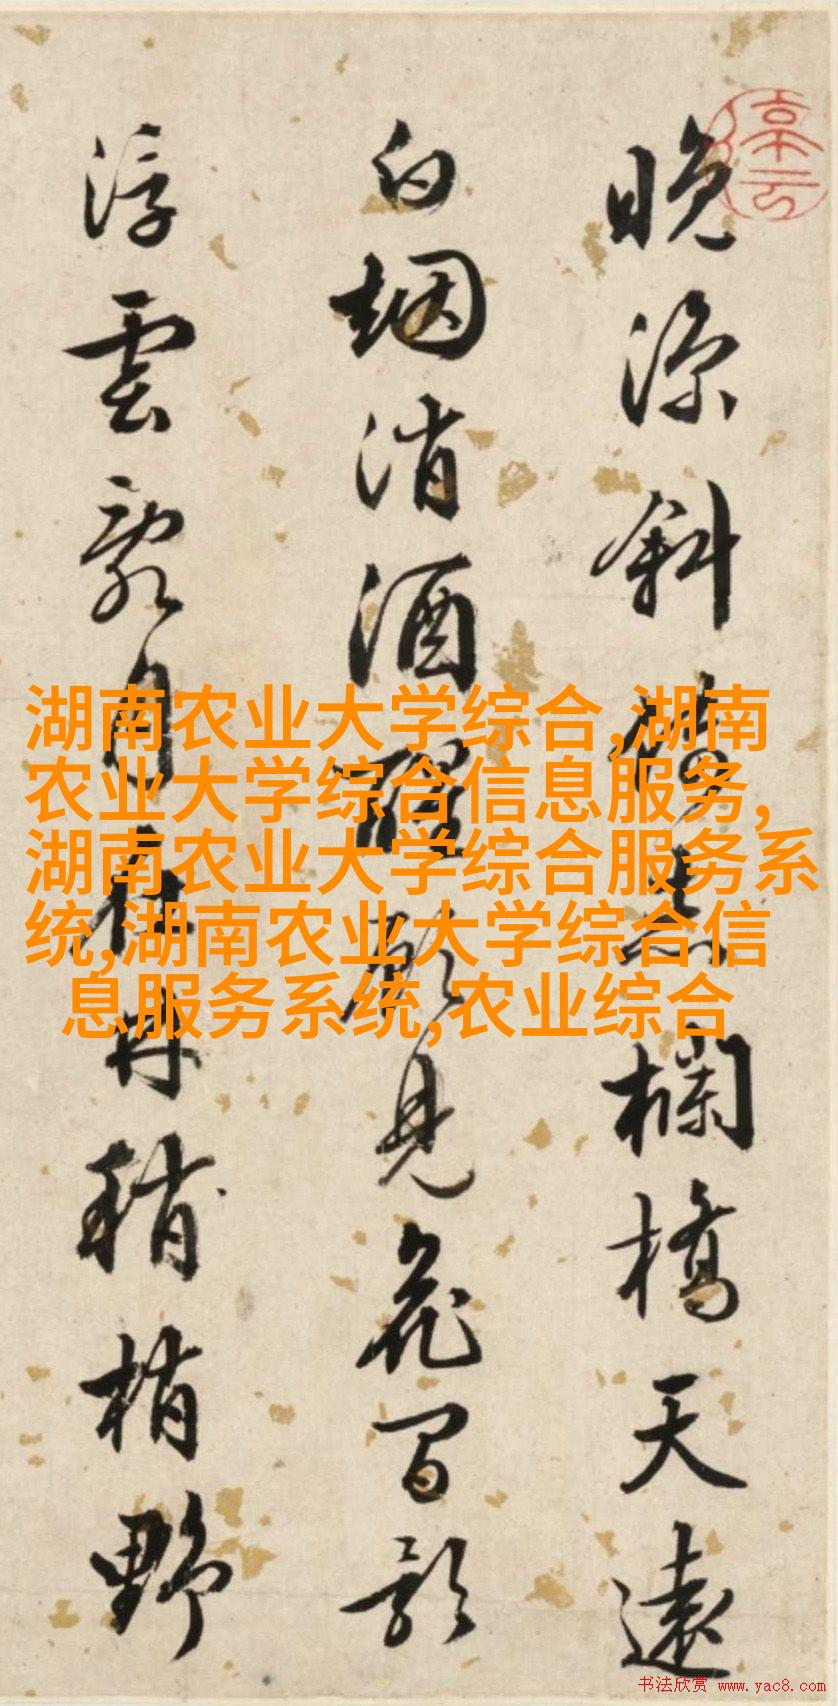 停云
晚涼斜倚赤欄橋天遠
白烟消酒醒見花間影
浮雲月在舟稍梢野
湖南农业大学综合,湖南
农业大学综合信息服务,
湖南农业大学综合服务系
统,湖南农业大学综合信
息服务系统,农业综合
书法欣赏 www.yac8.com